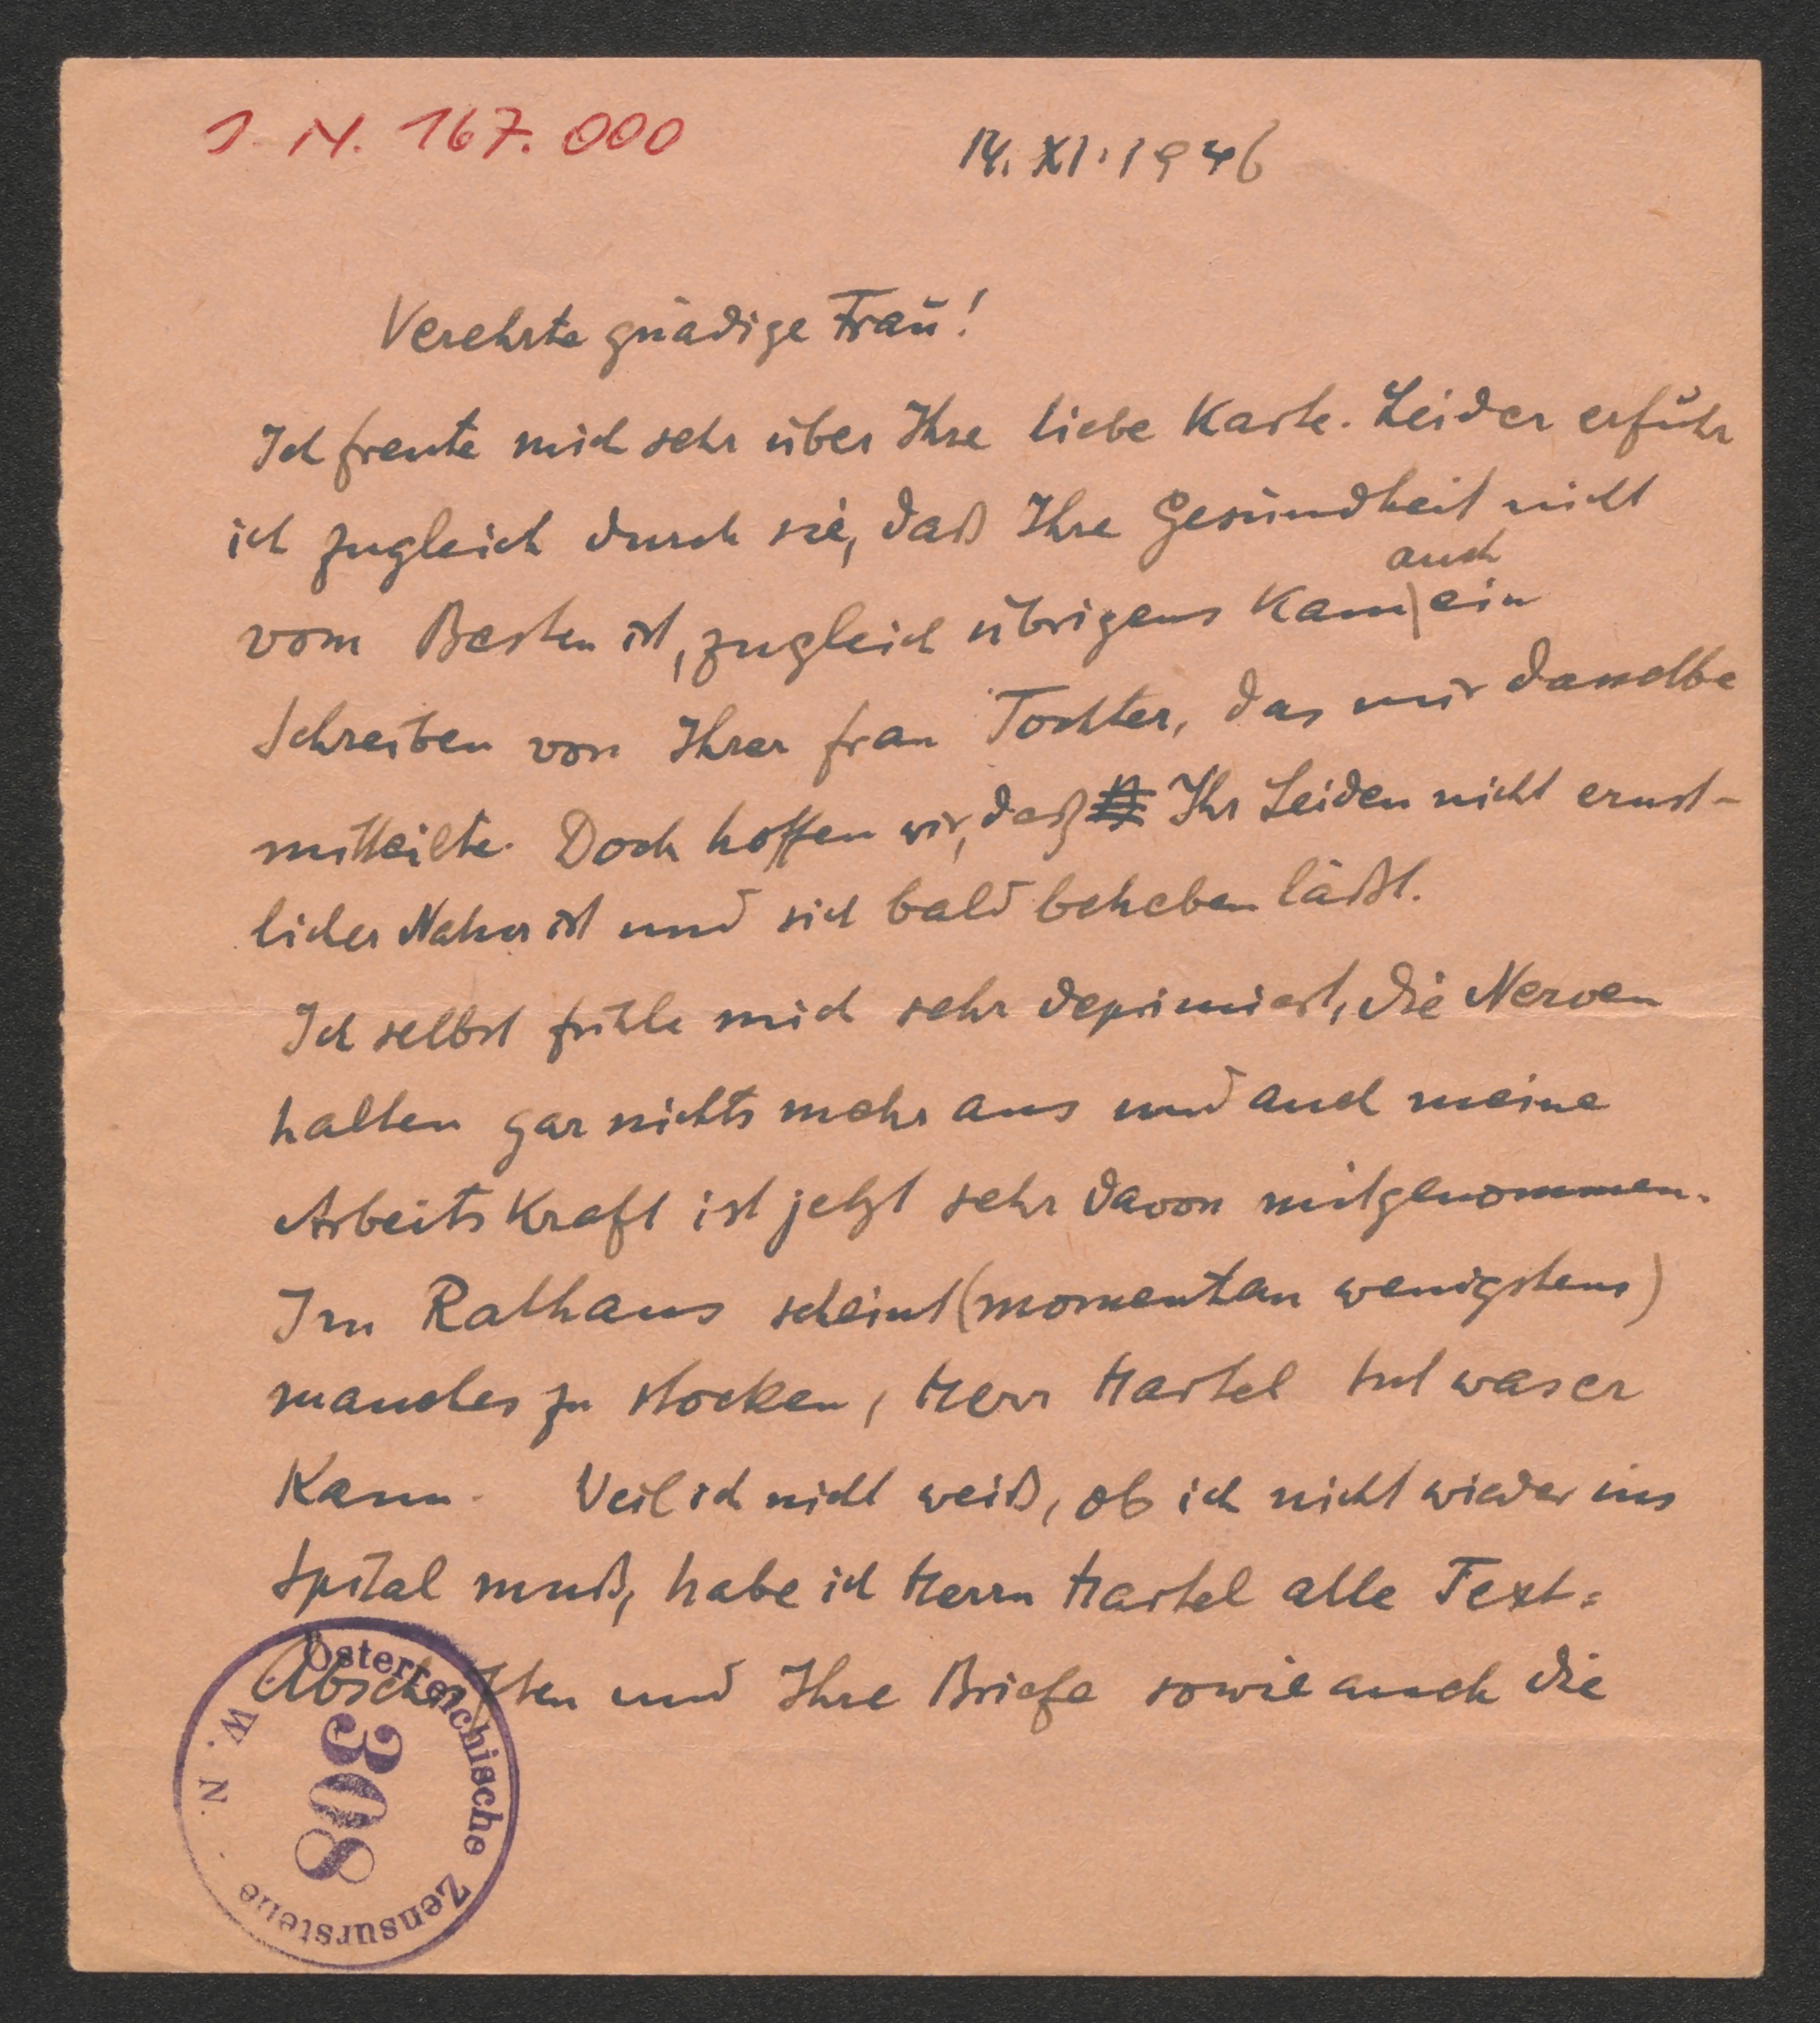 I. N. 167.000
14. XI. 1946
Verehrte gnädige Frau!
Ich freute mich sehr über Ihre liebe Karte. Leider erfuhr
ich zugleich durch sie, daß Ihre Gesundheit nicht
auch
vom Besten ist, zugleich übrigens kam ein
Schreiben von Ihrer Frau Tochter, das mir dasselbe
mitteilte. Doch hoffen wir, daß Ihr Leiden nicht ernst-
licher Natur ist und sich bald beheben läßt.
Ich selbst fühle mich sehr deprimiert, die Nerven
halten gar nichts mehr aus und auch meine
Arbeitskraft ist jetzt sehr davon mitgenommen.
Im Rathaus scheint (momentan wenigstens)
manches zu stocken, Herr Hartel tut was er
kann. Weil ich nicht weiß, ob ich nicht wieder ins
Spital muß, habe ich Herrn Hartel alle Text=
Abschriften und Ihre Briefe sowie auch die
Österreichische Zensurstelle
W. N.
308